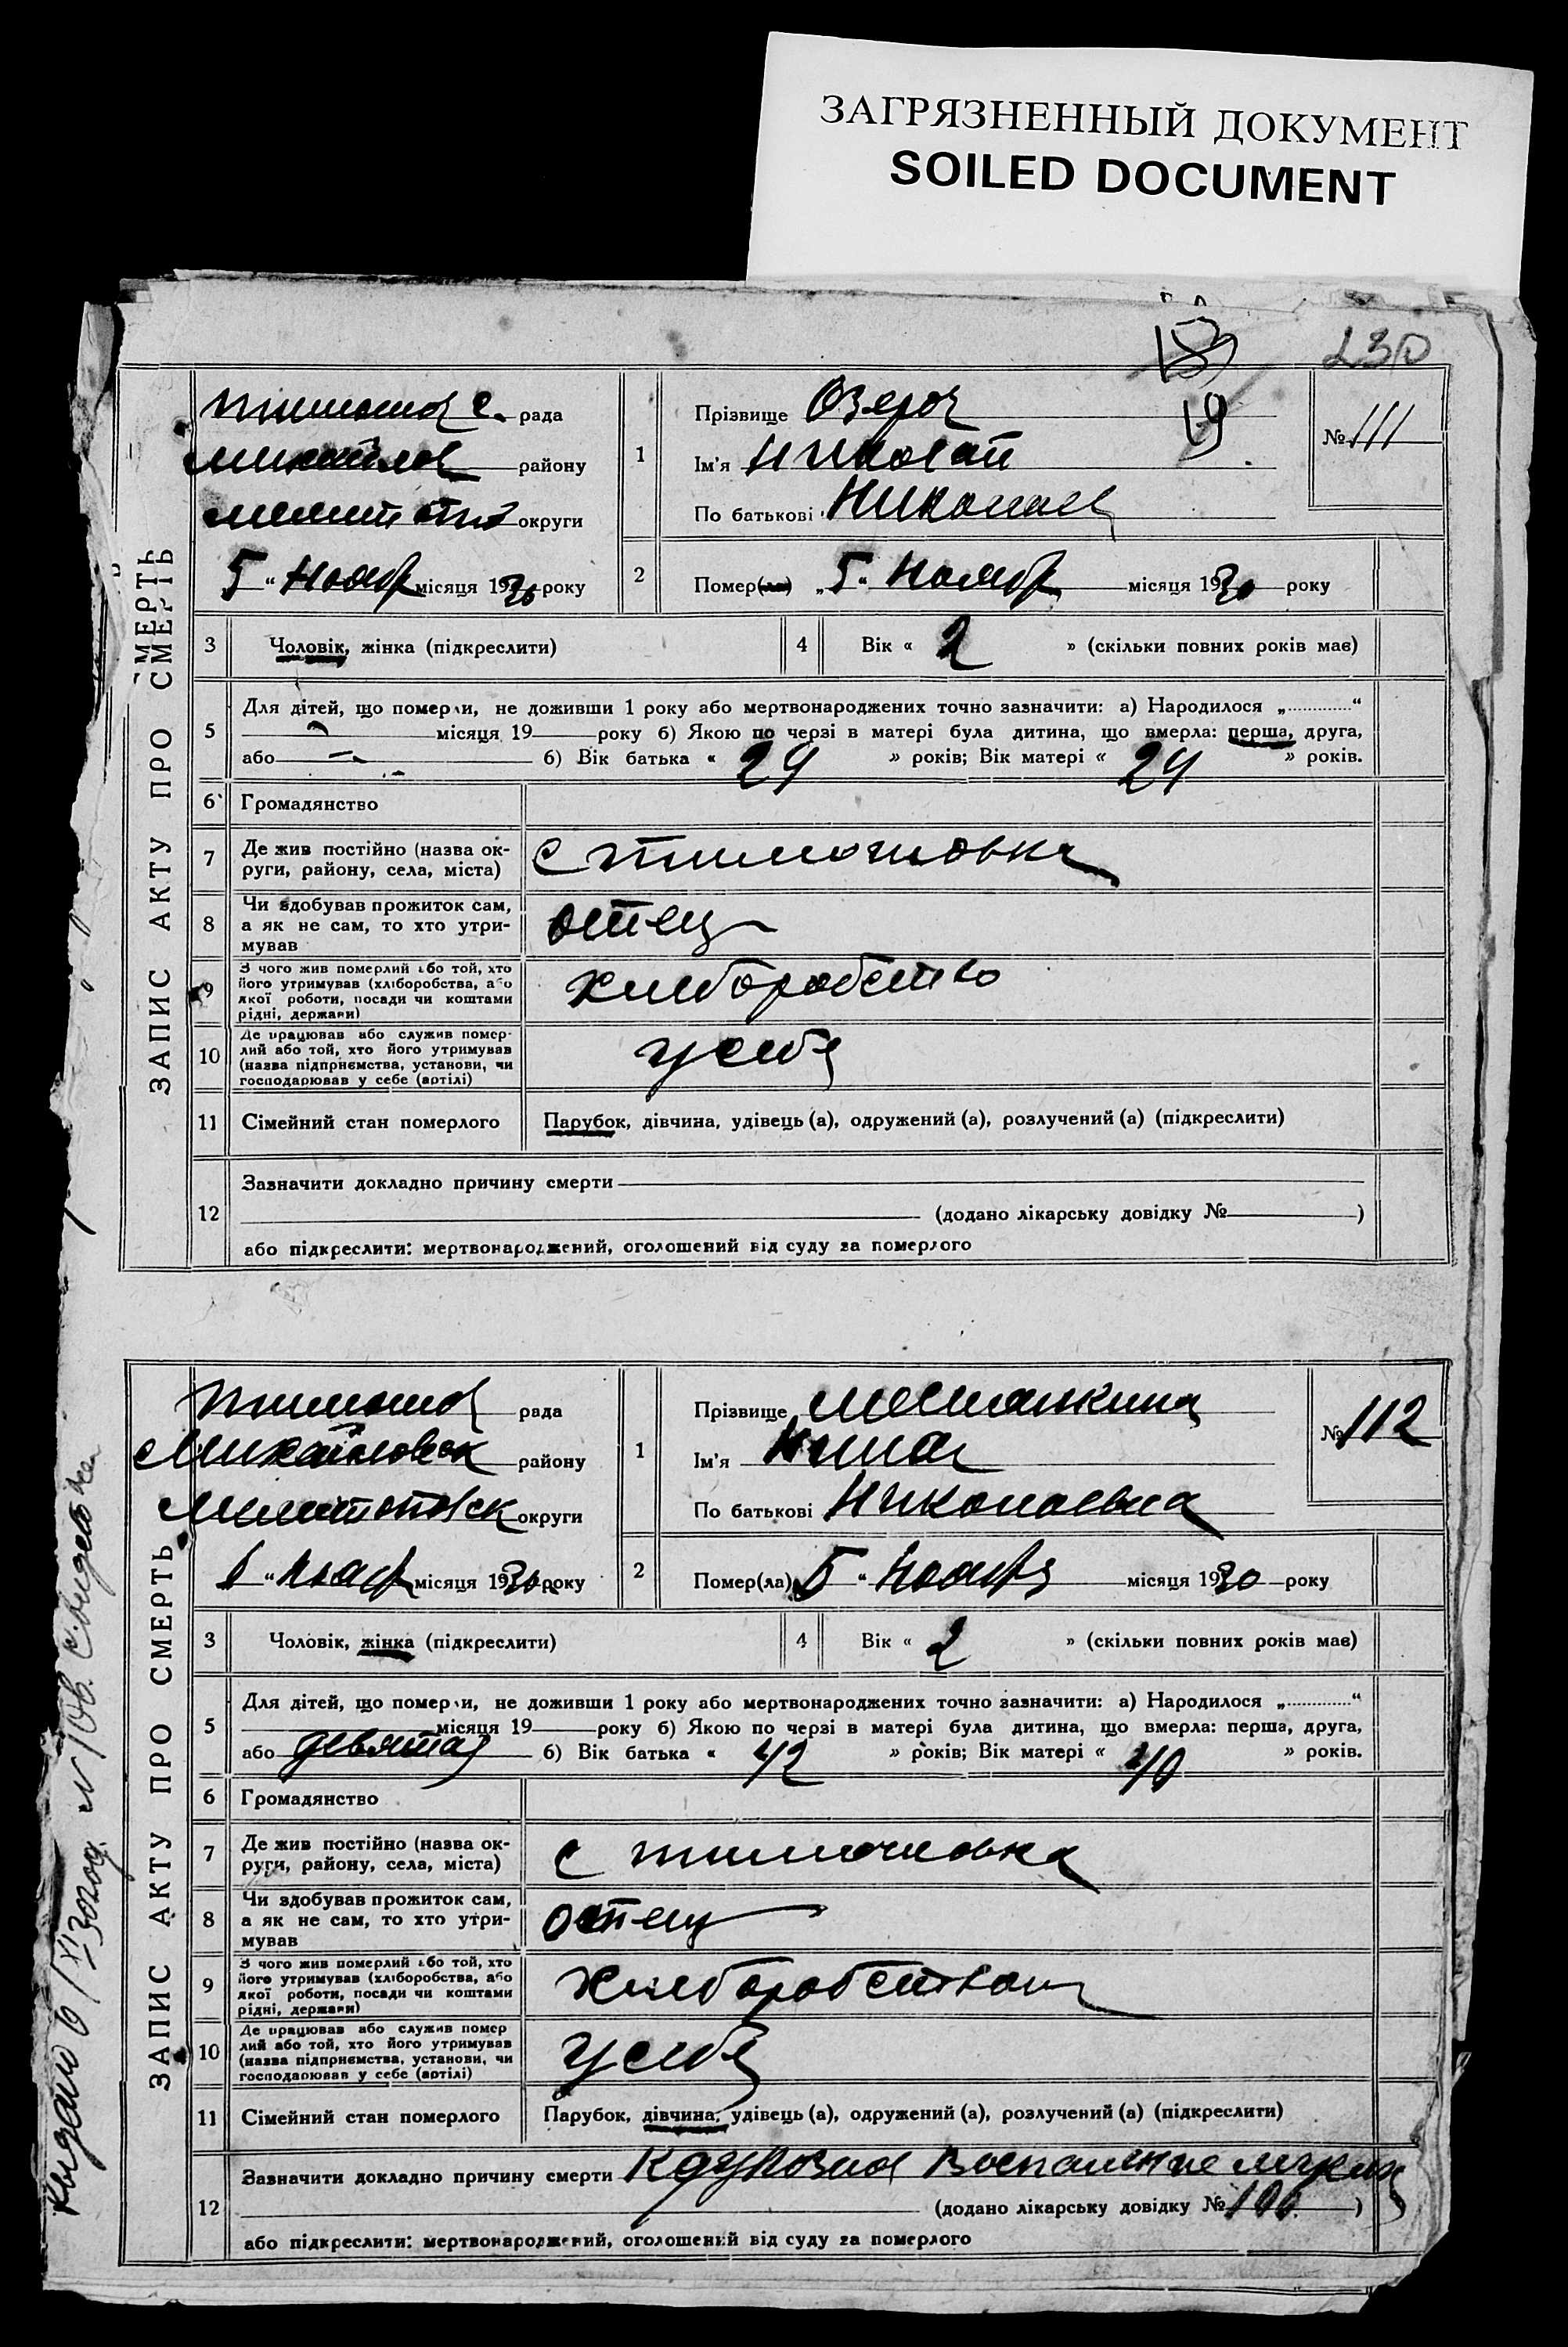 ЗАГРЯЗНЕННЫЙ ДОКУМЕНТ
SOILED DOCUMENT
19
230
ЗАПИС АКТУ ПРО СМЕРТЬ
СМЕРТЬ
Тимошов с. рада
Михайлов району
округи
5 „ Ноябр місяця 1930 року
1
Прізвище Озеров
Ім'я Николай
По батькові Николаев
№ 111
2
Помер(ла) „ 5 " Ноябр місяця 1930 року
3
Чоловік, жінка (підкреслити)
4
Вік « 2 » (скільки повних років має)
5
Для дітей, що померли, не доживши 1 року або мертвонароджених точно зазначити: а) Народилося „ “
місяця 19 року б) Якою по черзі в матері була дитина, що вмерла: перша, друга,
або б) Вік батька « 24 » років; Вік матері « 24 » років.
6
Громадянство
7
Де жив постійно (назва ок-
руги, району, села, міста)
с Тимошовка
8
Чи здобував прожиток сам,
а як не сам, то хто утри-
мував
отец
9
З чого жив померлий або той, хто
його утримував (хліборобства, або
якої роботи, посади чи коштами
рідні, держави)
хлеборобство
10
Де працював або служив помер-
лий або той, хто його утримував
(назва підприємства, установи, чи
господарював у себе (артілі)
у себе
11
Сімейний стан померлого
Парубок, дівчина, удівець (а), одружений (а), розлучений (а) (підкреслити)
12
Зазначити докладно причину смерти
(додано лікарську довідку № )
або підкреслити: мертвонароджений, оголошений від суду за померлого
ЗАПИС АКТУ ПРО СМЕРТЬ
Тимошов рада
Михайловск району
Мелитопольск округи
6 " Ноябр місяця 1930 року
1
Прізвище
Ім'я Нина
По батькові Николаевна
№ 112
2
Помер(ла) 5 " Ноября місяця 1930 року
3
Чоловік, жінка (підкреслити)
4
Вік « 2 » (скільки повних років має)
5
Для дітей, що померли, не доживши 1 року або мертвонароджених точно зазначити: а) Народилося „ “
місяця 19 року б) Якою по черзі в матері була дитина, що вмерла: перша, друга,
або девятая б) Вік батька « 42 » років; Вік матері « 40 » років.
6
Громадянство
7
Де жив постійно (назва ок-
руги, району, села, міста)
с Тимошовка
8
Чи здобував прожиток сам,
а як не сам, то хто утри-
мував
отец
9
З чого жив померлий або той, хто
його утримував (хліборобства, або
якої роботи, посади чи коштами
рідні, держави)
хлеборобством
10
Де працював або служив помер
лий або той, хто його утримував
(назва підприємства, установи, чи
господарював у себе (артілі)
у себе
11
Сімейний стан померлого
Парубок, дівчина, удівець (а), одружений (а), розлучений (а) (підкреслити)
12
Зазначити докладно причину смерти Крупозное Воспаление легких
(додано лікарську довідку № 106 )
або підкреслити: мертвонароджений, оголошений від суду за померлого